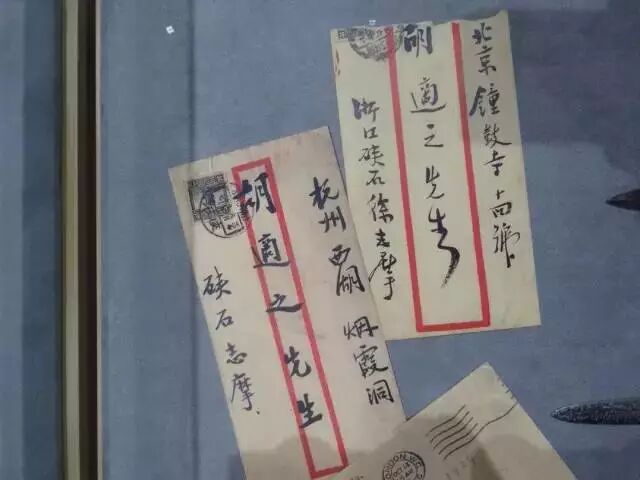 北京鐘鼓寺十四號
胡適之先生
浙江硤石徐志摩
杭州西湖烟霞洞
胡適之先生
硤石志摩